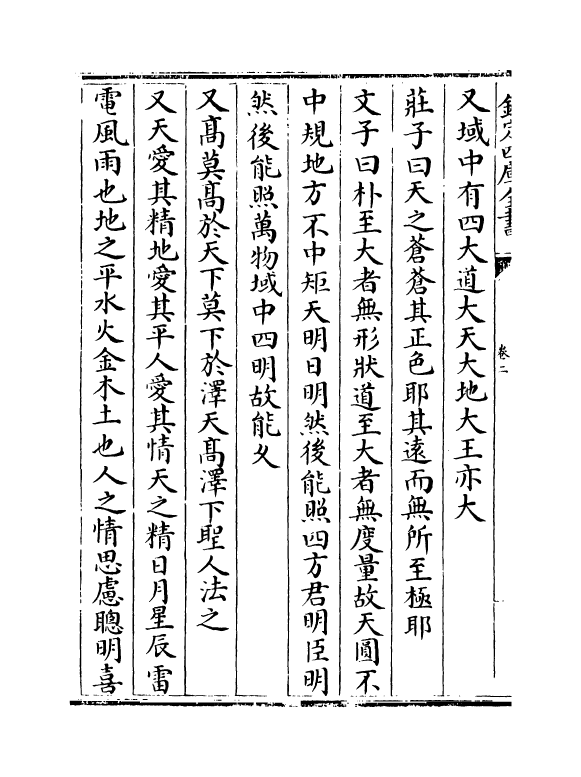 欽定四庫全書
卷二
又域中有四大道大天大地大王亦大
莊子曰天之蒼蒼其正色耶其遠而無所至極耶
文子曰朴至大者無形狀道至大者無度量故天圓不
中規地方不中矩天明日明然後能照四方君明臣明
然後能照萬物域中四明故能乆
又髙莫髙於天下莫下於澤天髙澤下聖人法之
又天愛其精地愛其平人愛其情天之精日月星辰雷
電風雨也地之平水火金木土也人之情思慮聰明喜